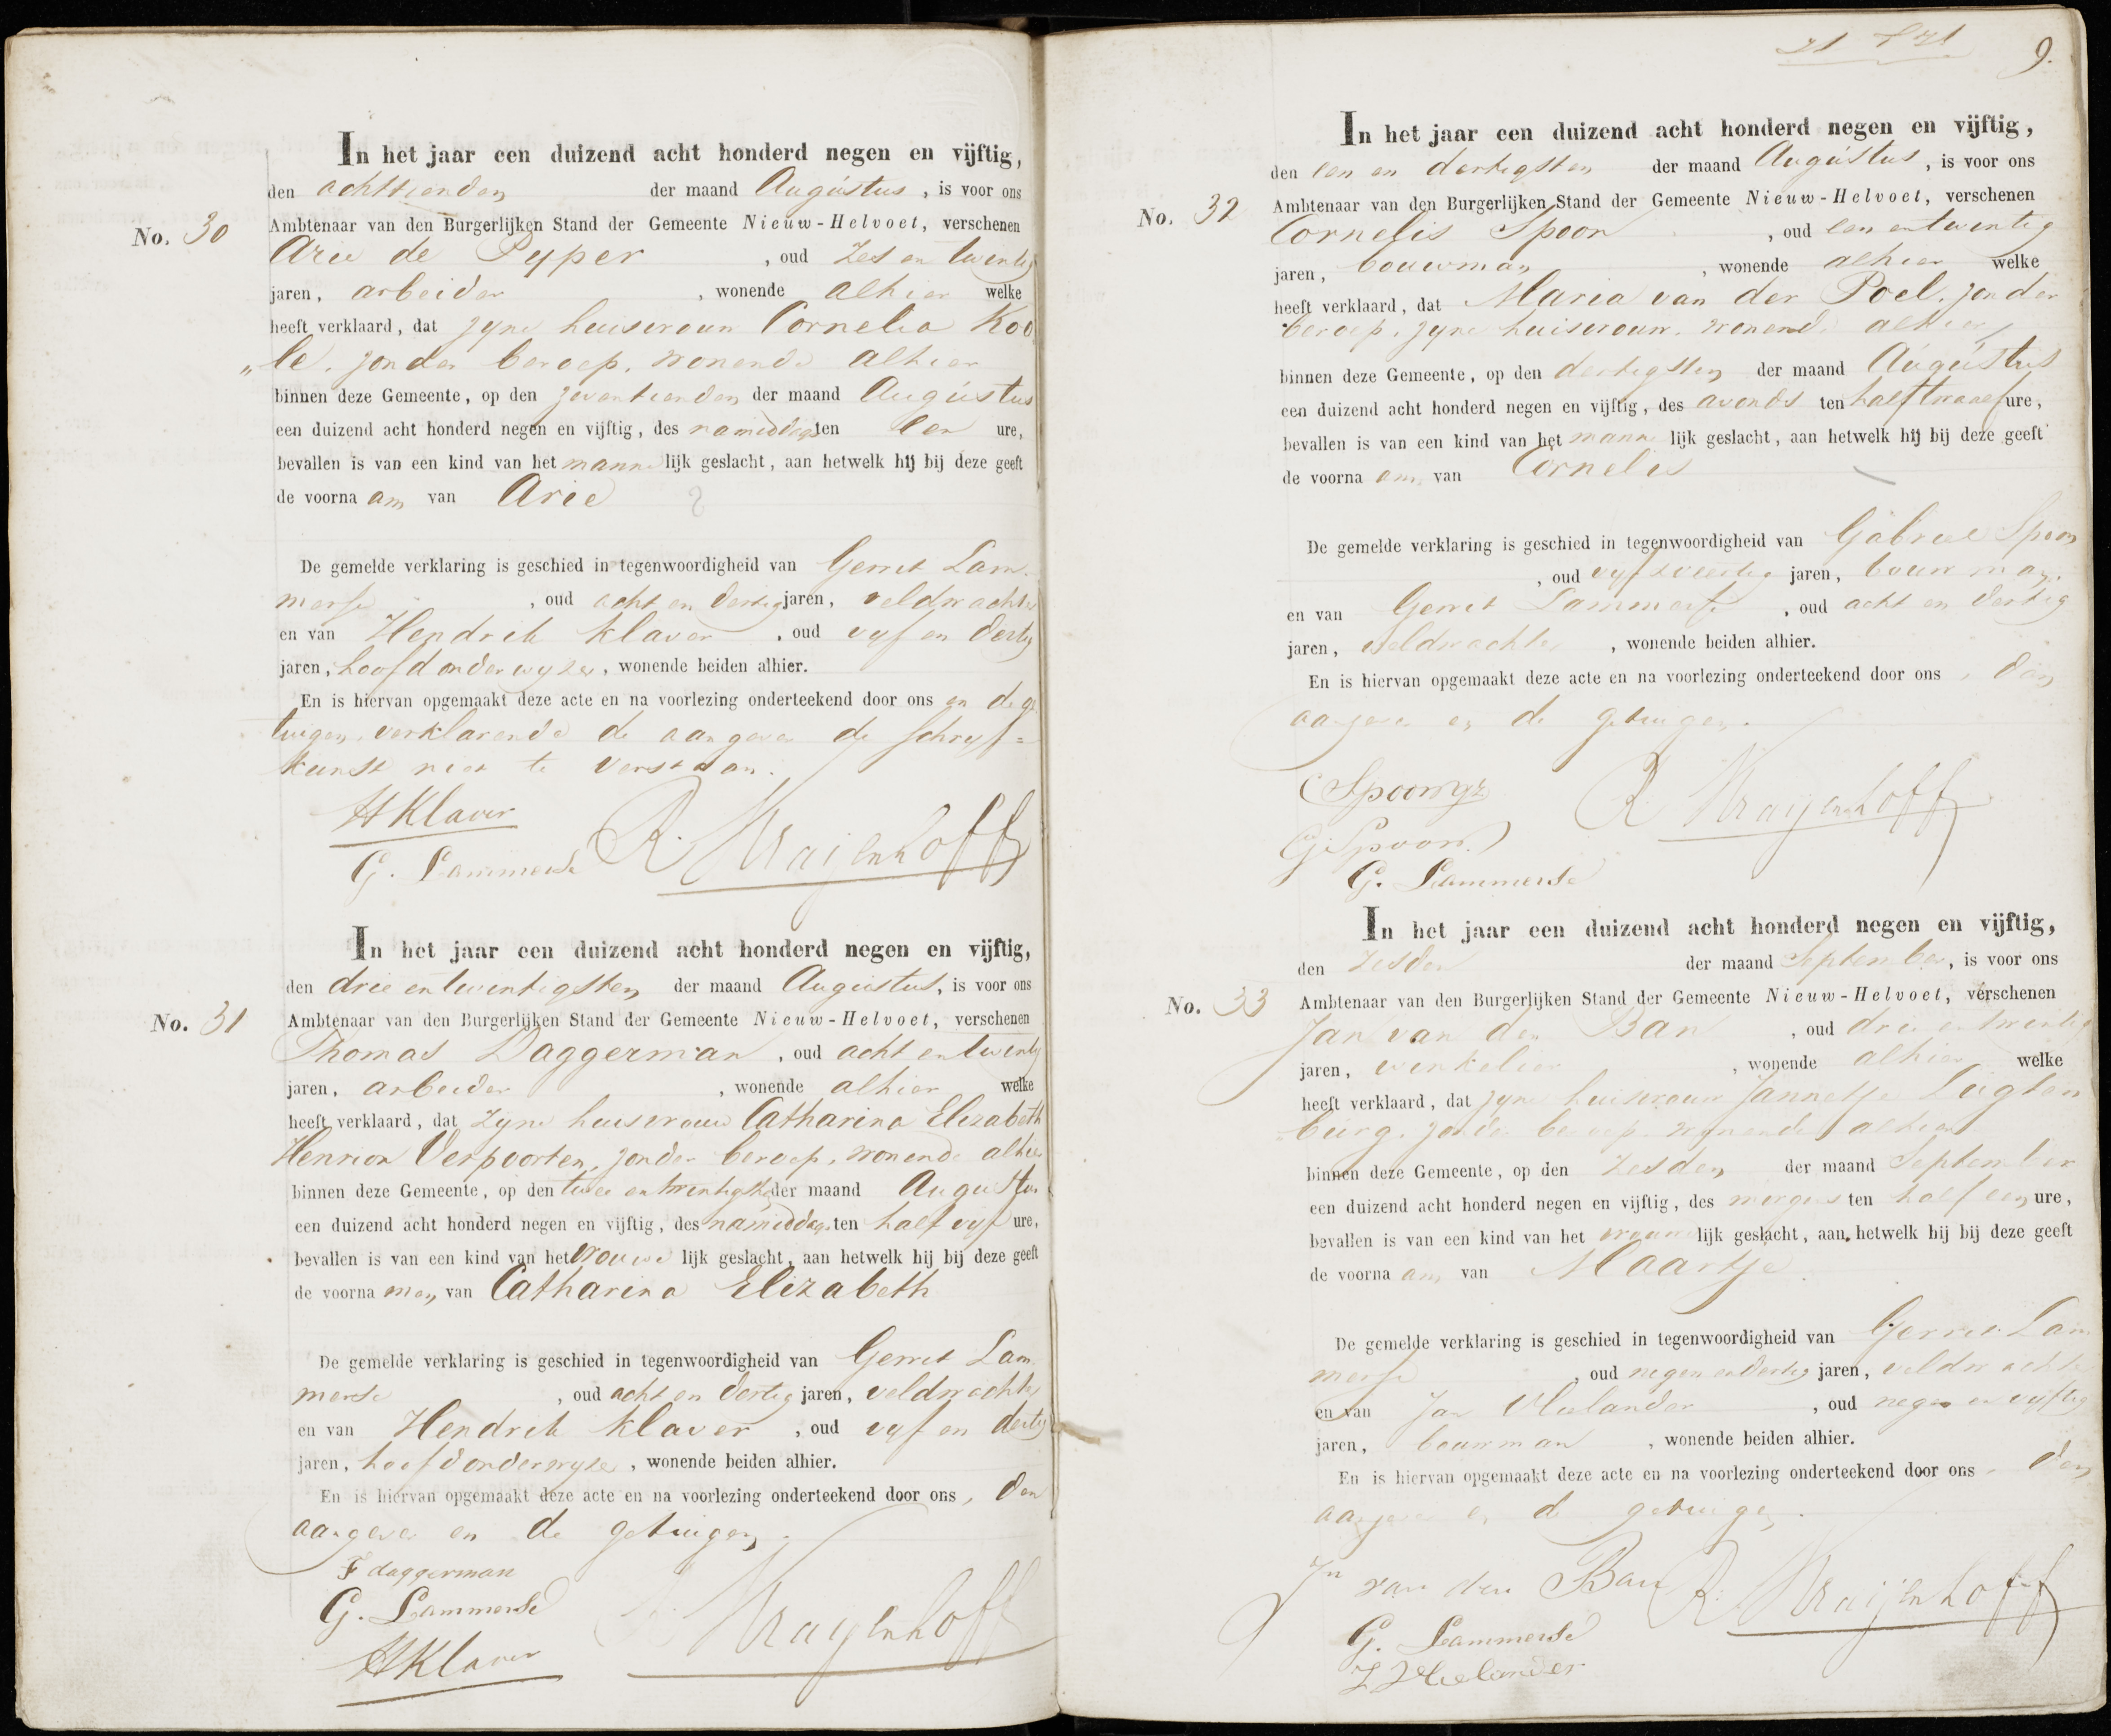 In het jaar een duizend acht honderd negen en vijftig,
den achttienden der maand Augustus, is voor ons
No. 30 Ambtenaar van den Burgerlijken Stand der Gemeente Nieuw-Helvoet, verschenen
Arie de Pyper, oud zes en twintig
jaren, arbeider, wonende alhier welke
heeft verklaard, dat zyne huisvrouw Cornelia Koo
„le, zonder beroep, wonende alhier
binnen deze Gemeente, op den zeventienden der maand Augustus
een duizend acht honderd negen en vijftig, des namiddags ten een ure,
bevallen is van een kind van het mannelijk geslacht, aan hetwelk hij bij deze geeft
de voornaam van Arie
De gemelde verklaring is geschied in tegenwoordigheid van Gerret Lam
merse, oud acht en dertig jaren, veldwachter
en van Hendrik Klaver, oud vyf en dertig
jaren, hoofdonderwyzer, wonende beiden alhier.
En is hiervan opgemaakt deze acte en na voorlezing onderteekend door ons en de ge
tuigen, verklarende de aangever de schryf=
kunst niet te verstaan.
H Klaver
G. Lammerse R. Kraijenhoff
In het jaar een duizend acht honderd negen en vijftig,
den drie en twintigsten der maand Augustus, is voor ons
No. 31 Ambtenaar van den Burgerlijken Stand der Gemeente Nieuw-Helvoet, verschenen
Thomas Daggerman, oud acht en twintig
jaren, arbeider, wonende alhier welke
heeft verklaard, dat zyne huisvrouw Catharina Elizabeth
Henrion Verpoorten, zonder beroep, wonende alhier
binnen deze Gemeente, op den twee en twintigste der maand Augustus
een duizend acht honderd negen en vijftig, des namiddags ten half vyf ure,
bevallen is van een kind van het vrouwelijk geslacht, aan hetwelk hij bij deze geeft
de voornamen van Catharina Elizabeth
De gemelde verklaring is geschied in tegenwoordigheid van Gerret Lam
merse, oud acht en dertig jaren, veldwachter
en van Hendrik Klaver, oud vyf en dertig
jaren, hoofdonderwyzer, wonende beiden alhier.
En is hiervan opgemaakt deze acte en na voorlezing onderteekend door ons, den
aangever en de getuigen.
F daggerman
G. Lammerse R. Kraijenhoff
H Klaver
9.
In het jaar een duizend acht honderd negen en vijftig,
den een en dertigsten der maand Augustus, is voor ons
No. 32 Ambtenaar van den Burgerlijken Stand der Gemeente Nieuw-Helvoet, verschenen
Cornelis Spoon, oud een en twintig
jaren, bouwman, wonende alhier welke
heeft verklaard, dat Maria van der Poel, zonder
beroep, zyne huisvrouw, wonende alhier,
binnen deze Gemeente, op den dertigsten der maand Augustus
een duizend acht honderd negen en vijftig, des avonds ten half twaalf ure,
bevallen is van een kind van het mannelijk geslacht, aan hetwelk hij bij deze geeft
de voornaam van Cornelis
De gemelde verklaring is geschied in tegenwoordigheid van Gabriel Spoon
, oud jaren, bouwman
en van Gerret Lammerse, oud acht en dertig
jaren, veldwachter, wonende beiden alhier.
En is hiervan opgemaakt deze acte en na voorlezing onderteekend door ons, den
aangever en de getuigen.
C Spoon R. Kraijenhoff
G. Spoon
G. Lammerse
In het jaar een duizend acht honderd negen en vijftig,
den zesden der maand September, is voor ons
No. 33 Ambtenaar van den Burgerlijken Stand der Gemeente Nieuw-Helvoet, verschenen
Jan van den Ban, oud drie en twintig
jaren, winkelier, wonende alhier welke
heeft verklaard, dat zyne huisvrouw Jannetje Lugten
„burg, zonder beroep, wonende alhier
binnen deze Gemeente, op den zesden der maand September
een duizend acht honderd negen en vijftig, des morgens ten half een ure,
bevallen is van een kind van het vrouwelijk geslacht, aan hetwelk hij bij deze geeft
de voornaam van Maartje
De gemelde verklaring is geschied in tegenwoordigheid van Gerret Lam
merse, oud negen en dertig jaren, veldwachter
en van Jan Vlielander, oud negen en vyftig
jaren, bouwman, wonende beiden alhier.
En is hiervan opgemaakt deze acte en na voorlezing onderteekend door ons, den
aangever en de getuigen.
Jn van den Ban R. Kraijenhoff
G. Lammerse
J Vlielander